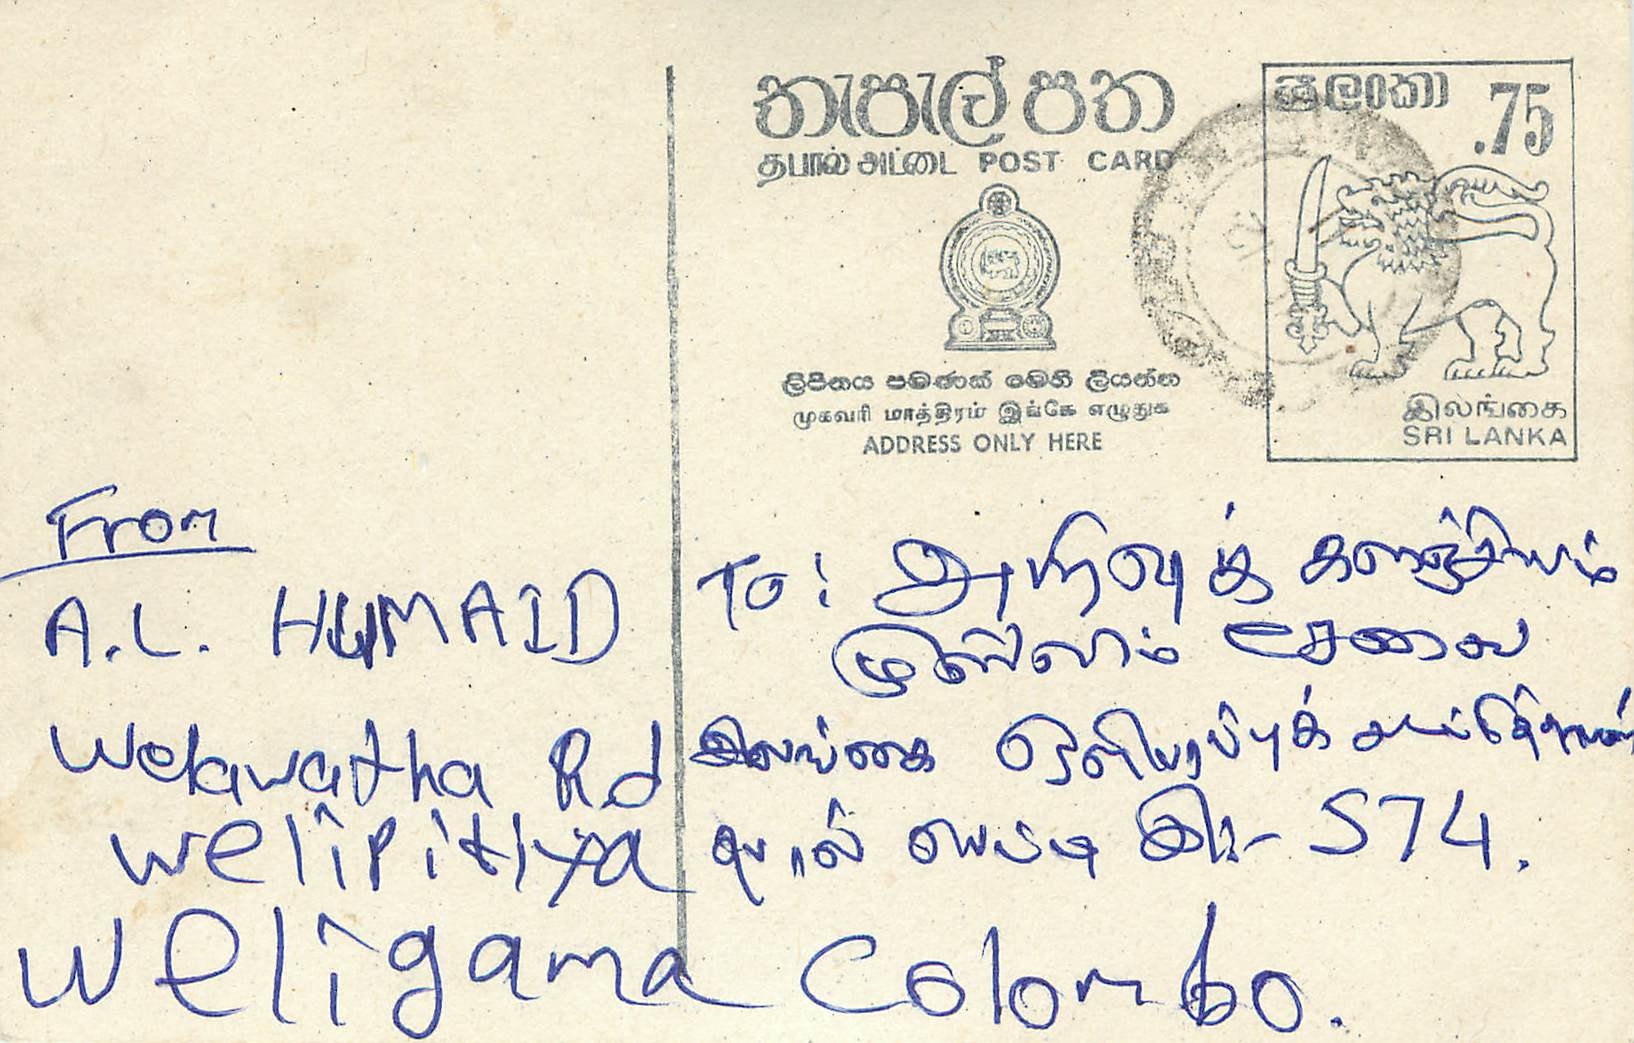 තැපැල් පත
தபால் அட்டை POST CARD
ශ්‍රී ලංකා .75
ලිපිනය පමණක් මෙහි ලියන්න
முகவரி மாத்திரம் இங்கே எழுதுக
ADDRESS ONLY HERE
இலங்கை
SRI LANKA
From
A.L. HUMAID
Welawatha Rd
Welipitiya
Weligama
To: அறிவுக் களஞ்சியம்
முஸ்லிம் சேவை
இலங்கை ஒலிபரப்புக்
தபால் பெட்டி இல:- 574.
Colombo.